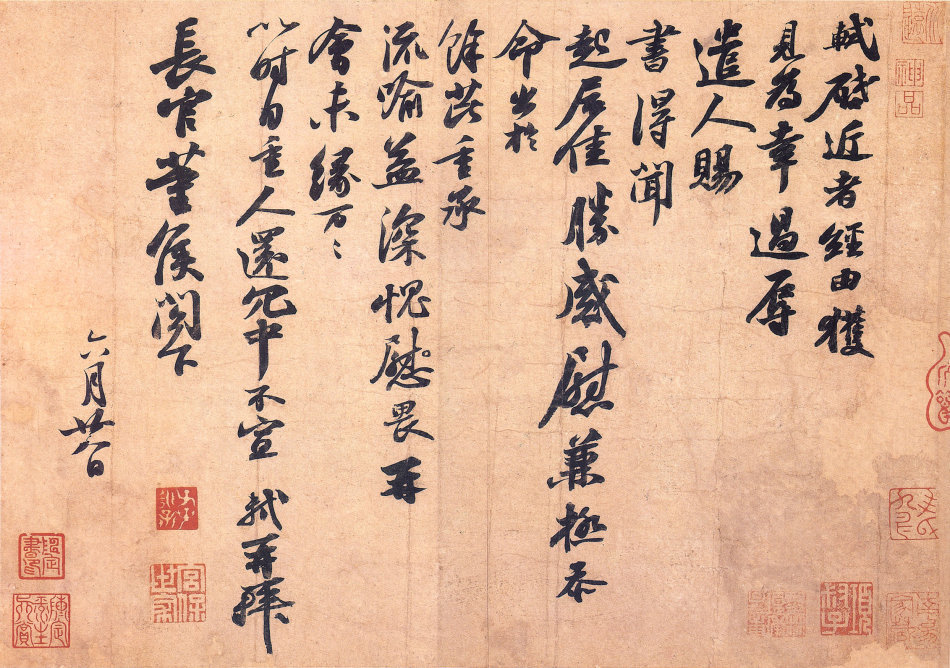 軾啓近者經由獲
見為幸過辱
遣人賜
書得聞
起居佳勝感慰兼極忝
命出於
餘芘重承
流喻益深愧慰畏再
會未緣万〻
以时自重人還冗中不宣 軾再拜
長官董侯閣下
六月廿八日
神品